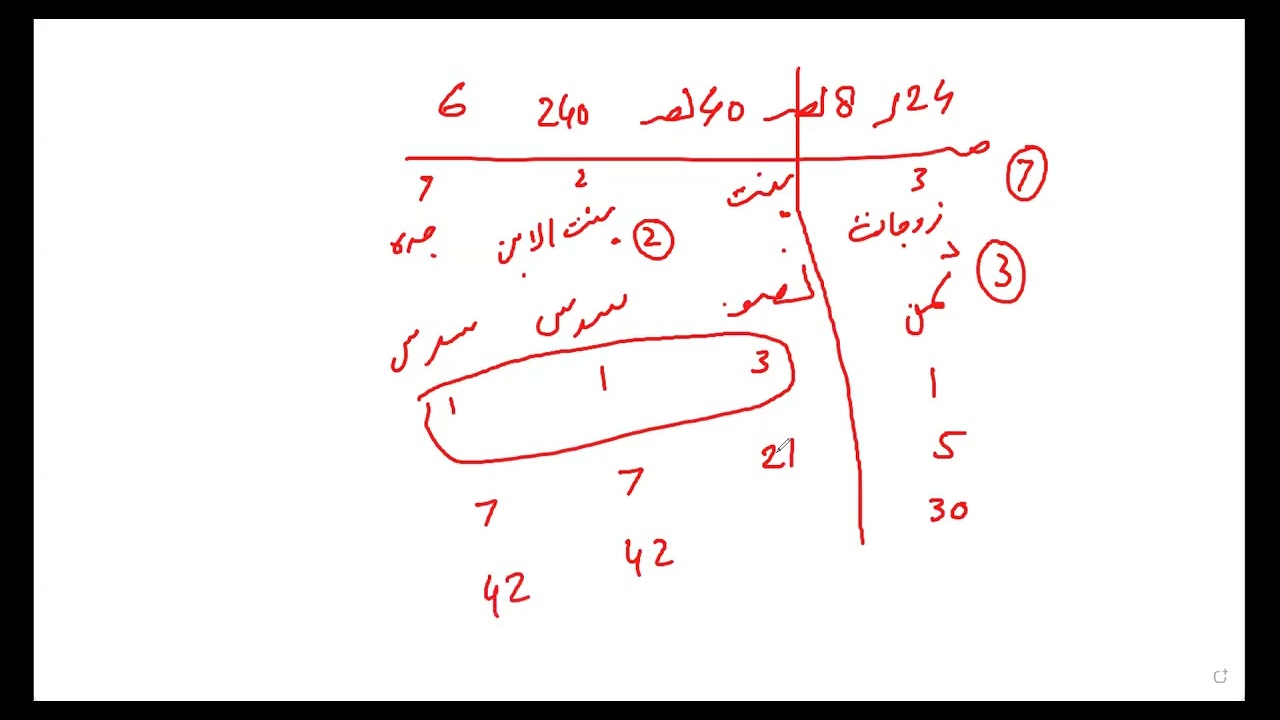 24ر 8لصـ 40لصـ 240 6
صـ
3 2 7 7
زوجات بنت بنت الابن 2 جده
ثمن 3 نصف سدس سدس
1 3 1 1
5 21 7 7
30 42 42